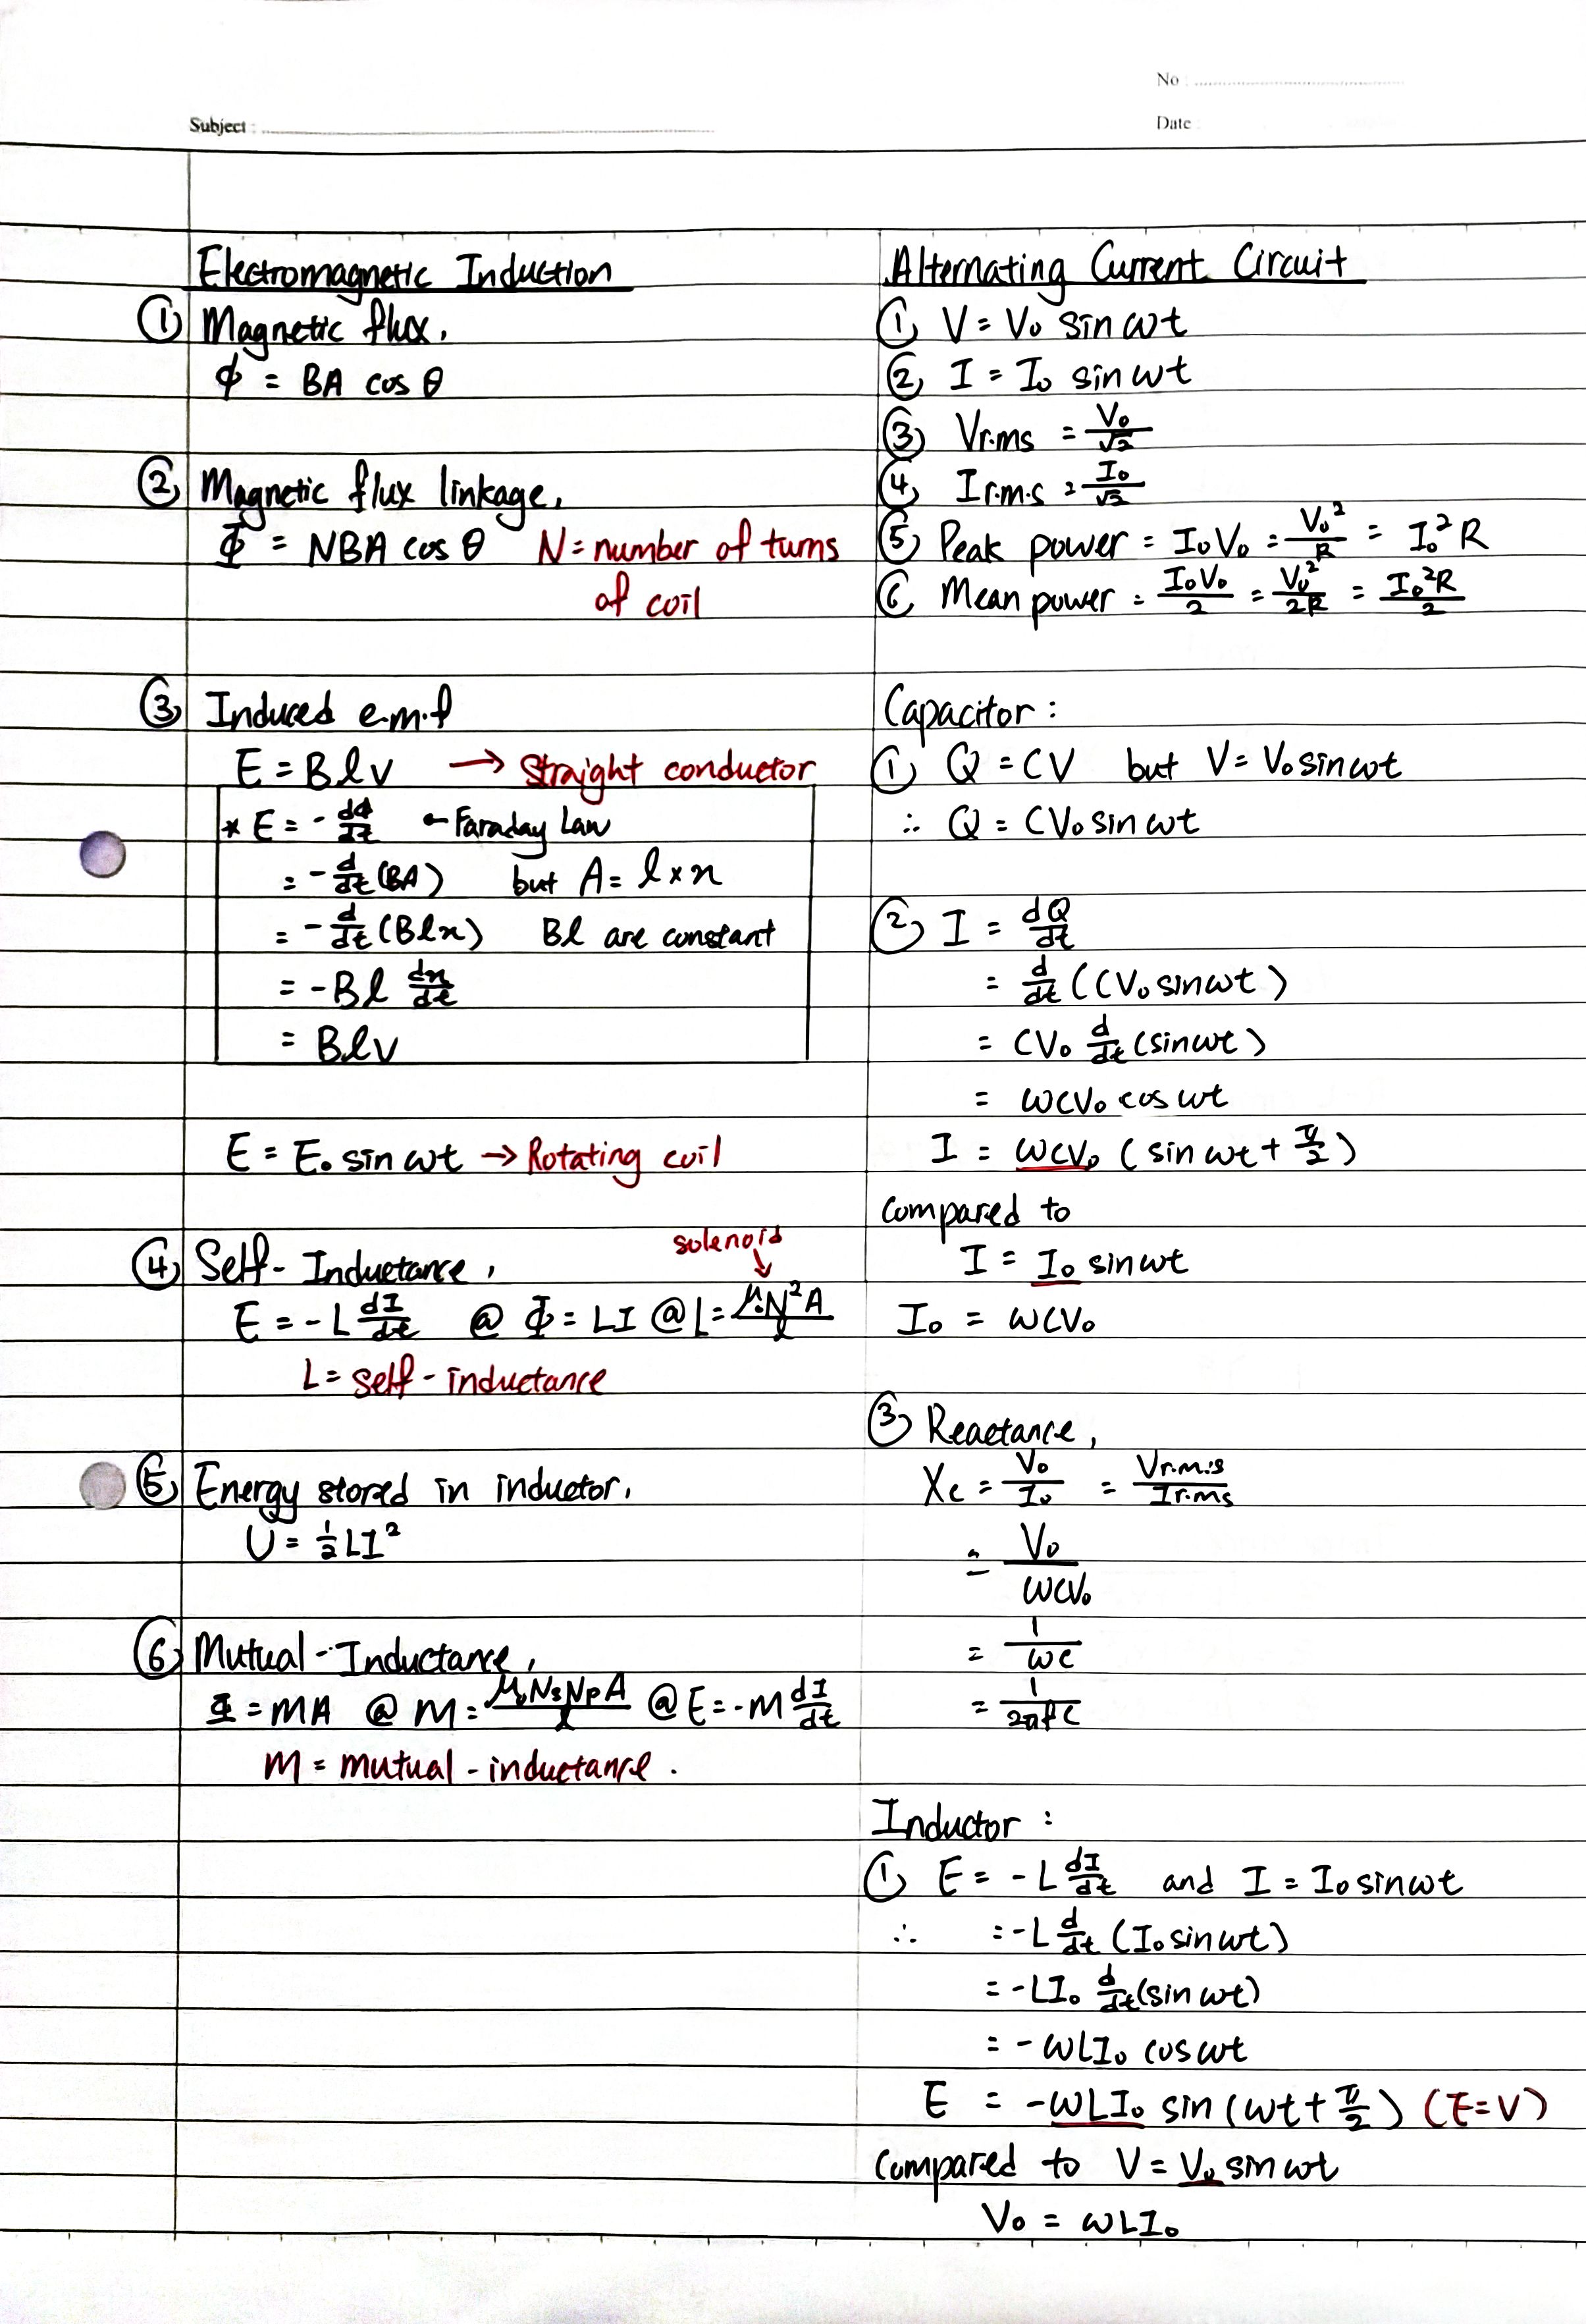 No :
Subject :
Date :
Electromagnetic Induction
① Magnetic flux,
ϕ = BA cos θ
② Magnetic flux linkage,
Φ = NBA cos θ N = number of turns
of coil
③ Induced e.m.f
E = Blv → Straight conductor
* E = - dϕ/dt ← Faraday Law
= - d/dt (BA) but A = l × x
= - d/dt (Blx) Bl are constant
= - Bl dx/dt
= Blv
E = E₀ sin ωt → Rotating coil
solenoid
↓
④ Self-Inductance,
E = - L dI/dt @ Φ = LI @ L = μ₀N²A/l
L = self-inductance
⑤ Energy stored in inductor,
U = ½ LI²
⑥ Mutual-Inductance,
Φ = MA @ M = μ₀NsNpA/l @ E = -M dI/dt
M = mutual-inductance.
Alternating Current Circuit
① V = V₀ sin ωt
② I = I₀ sin ωt
③ Vr.ms = V₀/√2
④ Ir.m.s = I₀/√2
⑤ Peak power = I₀V₀ = V₀²/R = I₀²R
⑥ Mean power = I₀V₀/2 = V₀²/2R = I₀²R/2
Capacitor :
① Q = CV but V = V₀ sin ωt
∴ Q = CV₀ sin ωt
② I = dQ/dt
= d/dt (CV₀ sin ωt)
= CV₀ d/dt (sin ωt)
= ωCV₀ cos ωt
I = ωCV₀ (sin ωt + π/2)
Compared to
I = I₀ sin ωt
I₀ = ωCV₀
③ Reactance,
Xc = V₀/I₀ = Vr.m.s/Ir.ms
= V₀/ωCV₀
= 1/ωC
= 1/2πfC
Inductor :
① E = - L dI/dt and I = I₀ sin ωt
∴ = - L d/dt (I₀ sin ωt)
= - LI₀ d/dt (sin ωt)
= - ωLI₀ cos ωt
E = - ωLI₀ sin (ωt + π/2) (E = V)
Compared to V = V₀ sin ωt
V₀ = ωLI₀